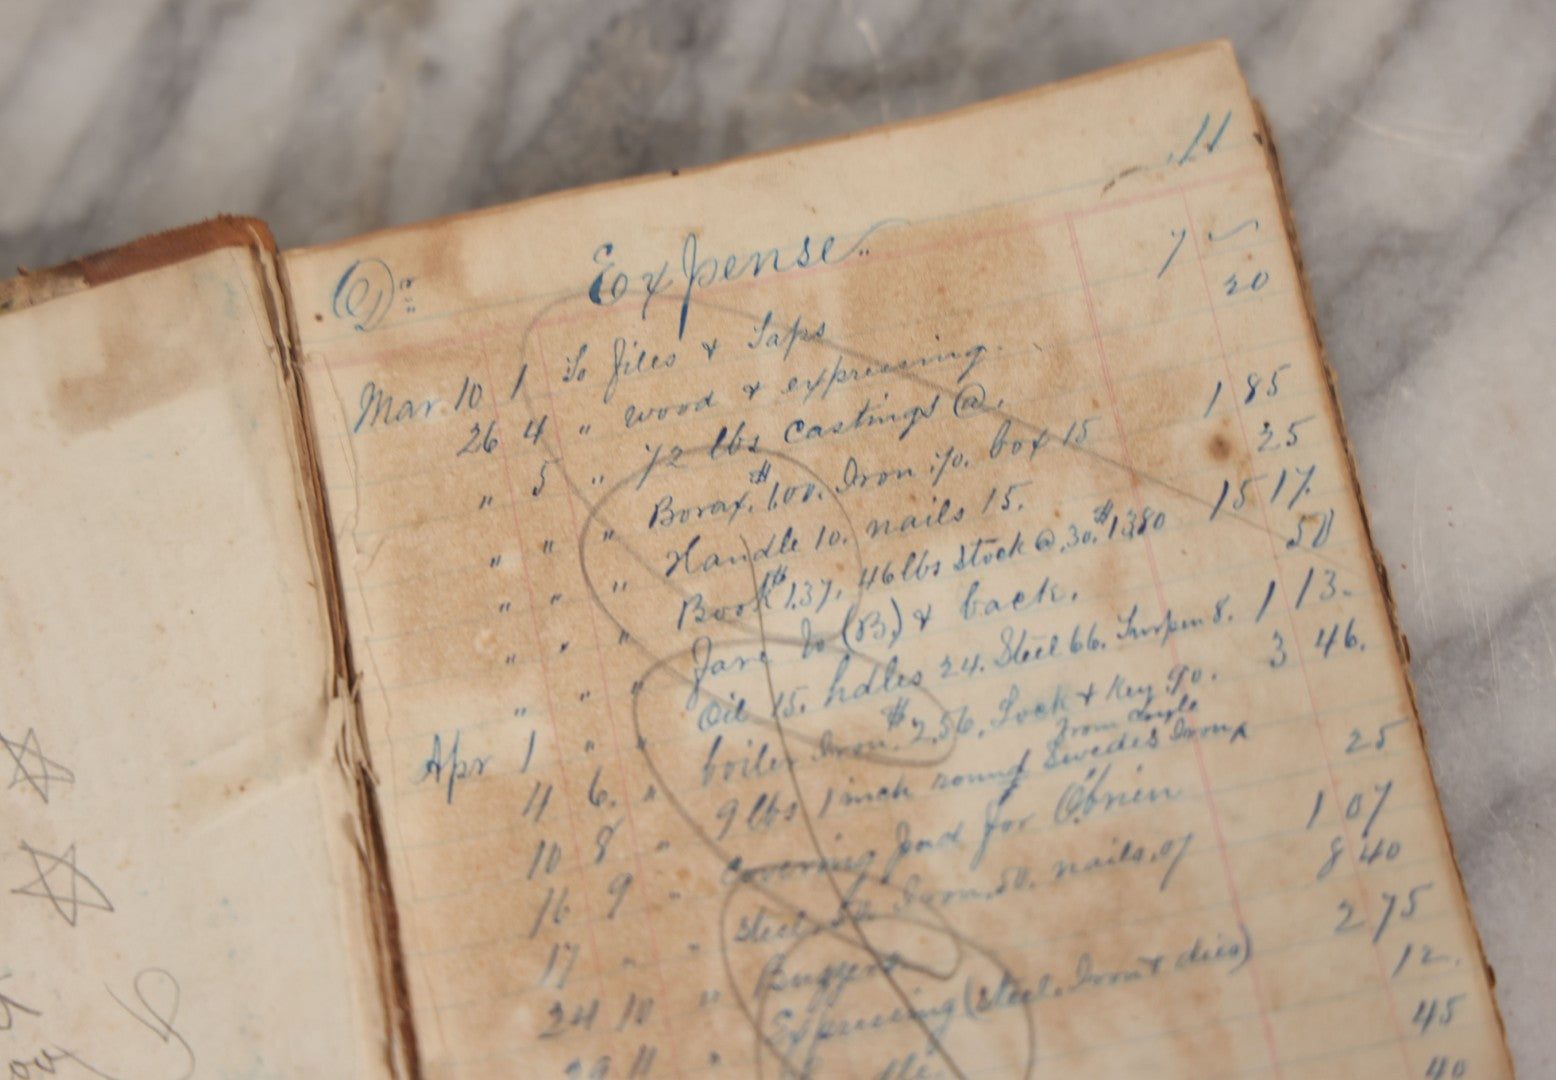 11
Dr Expense
Mar 10 1 To files & Taps 7 —
26 4 " wood & expressing. 20
" 5 " 72 lbs castings @.
" " " Borax. $1.00. Iron .70. box 15 1 85
" " " Handle 10. nails 15. 25
" " " Book $1.37. 46 lbs Stock @ .30. $13.80 15 17.
" " " Fare to (B.) & back. 50
Apr 1 " " Oil 15. hdles 24. Steel 66. 8. 1 13.
4 6. " boiler Iron. $2.56. Lock & Key 90. 3 46.
10 8 " 9 lbs 1 inch round Swedes Iron from
16 9 " covering for O'brien 25
17 " " steel. Iron. 50. nails. 07 1 07
24 10 " 8 40
29 11 " Expressing (steel. Iron & dies) 2 75
12.
45
40